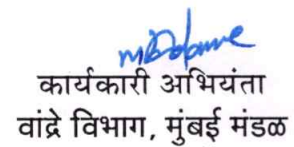 कार्यकारी अभियंता
वांद्रे विभाग, मुंबई मंडळ